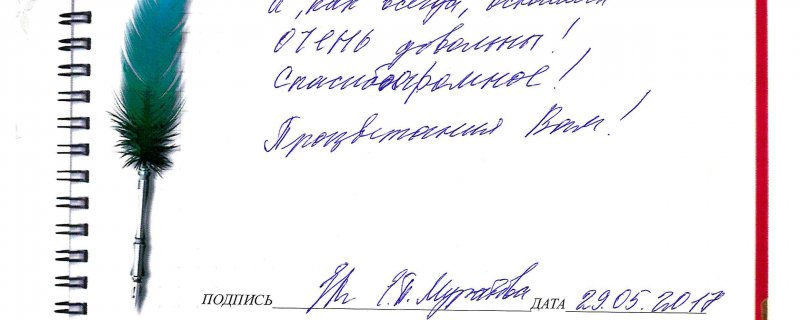 и, как всегда, остались
ОЧЕНЬ довольны!
Спасибо огромное!
Процветания Вам!
ПОДПИСЬ Муратова ДАТА 29.05.2017